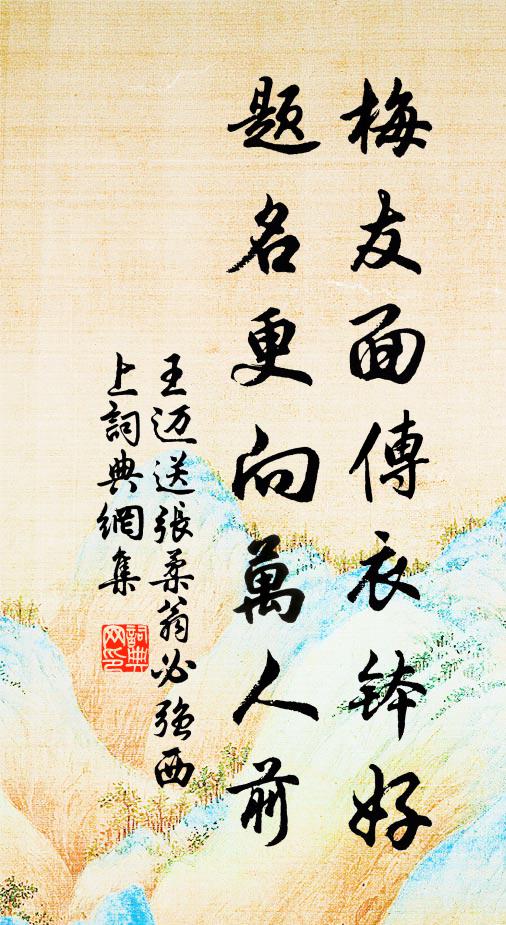 梅友面傳衣鉢好
題名更向萬人前
王迈送張柔翁必強西
上詞典網集
詞典网印